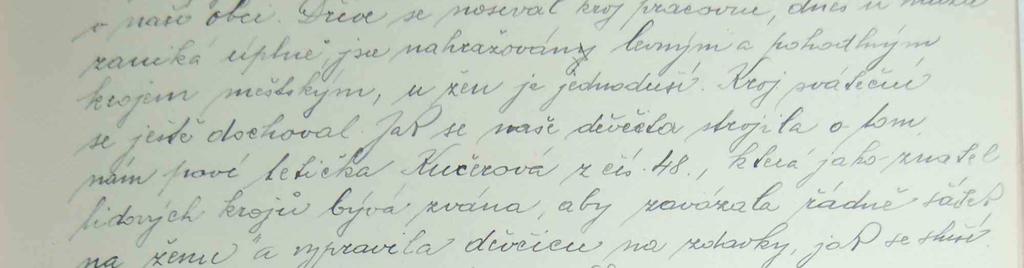 v naší obci. Dříve se nosíval kroj pracovní, dnes u mužů
zaniká úplně, jsa nahražován levným a pohodlným
krojem městským, u žen je jednoduší. Kroj sváteční
se ještě dochoval. Jak se naše děvčata strojila o tom
nám poví tetička Kučerová z čís. 48., která jako znatel
lidových krojů bývá zvána, aby zavázala řádně šátek
na ženu" a vypravila děvčicu na zdavky, jak se sluší.